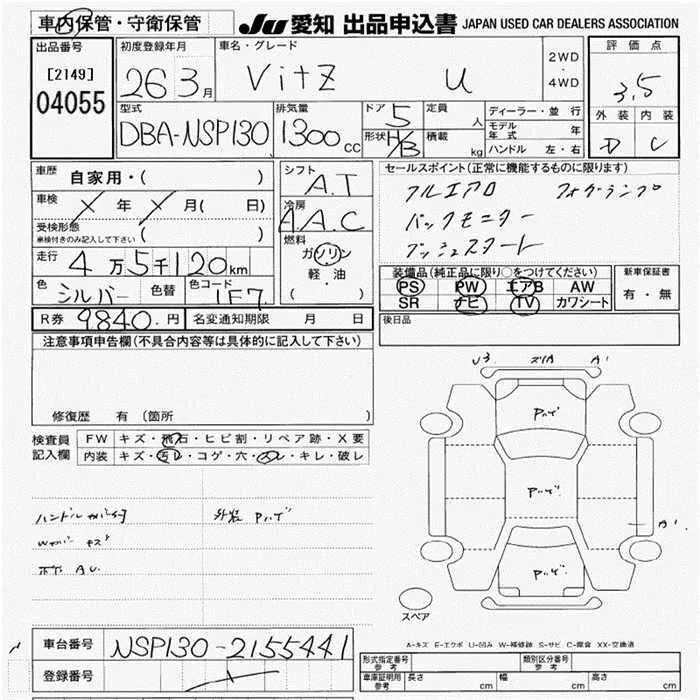 車内保管・守衛保管 JU 愛知 出品申込書 JAPAN USED CAR DEALERS ASSOCIATION
出品番号 初度登録年月 車名・グレード 評価点
[2149] 26 3月 VitZ U 2WD・4WD 3.5
04055 型式 排気量 ドア 5 定員 人 ディーラー・並行 外装 内装
DBA-NSP130 1300cc 形状 H/B 積載 kg モデル年式 年 D C
ハンドル 左・右
車歴 自家用・( ) シフト A.T セールスポイント(正常に機能するものに限ります)
車検 X年 X月( 日) 冷房 A.A.C フルエアロ フォグランプ
受検形態 ( ) バックモニター
車検付きのみ記入して下さい 燃料 プッシュスタート
走行 4万5千120km ガソリン 装備品(純正品に限り○をつけてください) 新車保証書
色 シルバー 色替 色コード 1F7 軽・油 PS PW エアB AW 有・無
( ・ ) SR ナビ TV カワシート
R券 9840.円 名変通知期限 月 日 後日品
注意事項申告欄(不具合内容等は具体的に記入して下さい)
U3 ズリA A1
Pハゲ
修復歴 有 (箇所 )
検査員記入欄 FW キズ・飛石・ヒビ割・リペア跡・X要
内装 キズ・汚レ・コゲ・穴・スレ・キレ・破レ
Pハゲ
ハンドルカバー付 外装 Pハゲ
A1
Wカバー キズ
下下 AU Pハゲ
スペア
A-キズ E-エクボ U-凹み W-補修跡 S-サビ C-腐食 XX-交換済
車台番号 NSP130-2155441
登録番号
形式指定番号 参考 類別区分番号 参考
車庫証明用 参考 長さ cm 幅 cm 高さ cm